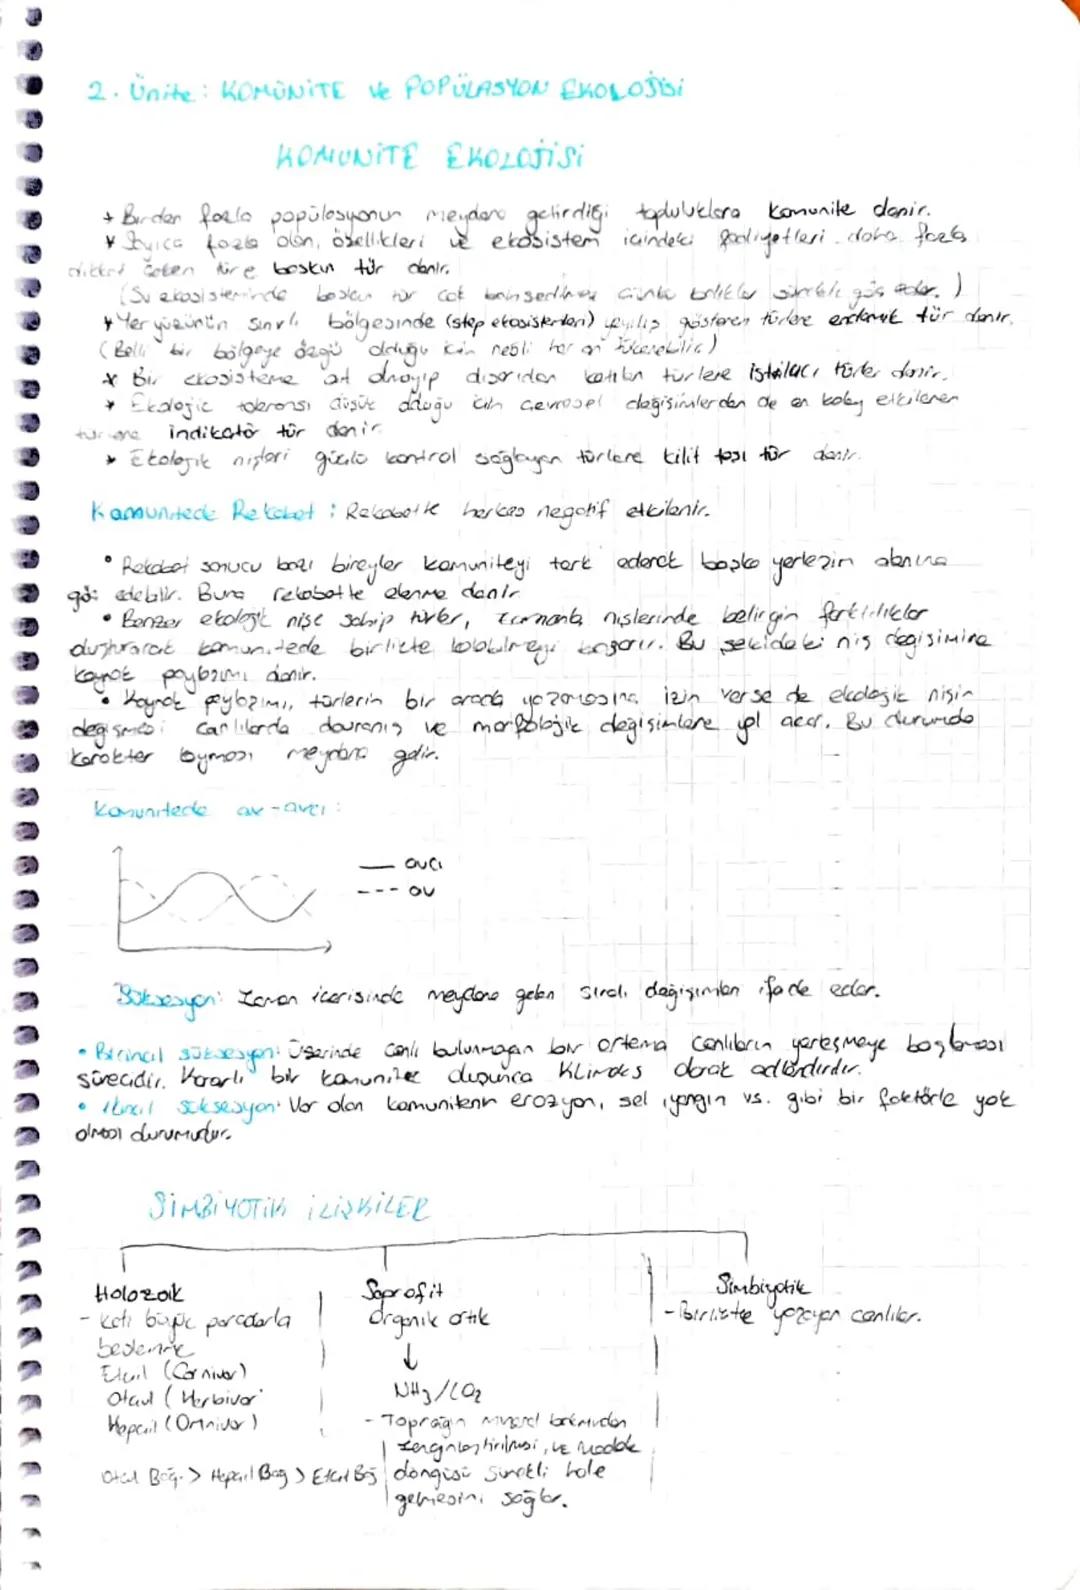 2. Ünite: KOMÜNİTE ve POPÜLASYON EKOLOJİSİ
KOMUNİTE EKOLOJİSİ
+ Birden fazla popülasyonun meydana getirdiği topluluklara komunite denir.
* Sayıca fazla olan, özellikleri ve ekosistem içindeki faaliyetleri daha fazla
dikkat çeken türe baskın tür denir.
(Su ekosisteminde baskın tür çok benimsenmez çünkü balıklar sürekli göç eder.)
* Yeryüzünün sınırlı bölgesinde (step ekosistemleri) yayılış gösteren türlere endemik tür denir.
(Belli bir bölgeye özgü olduğu için nesli her an tükenebilir.)
* Bir ekosisteme ait olmayıp dışarıdan katılan türlere istilacı türler denir.
* Ekolojik toleransı düşük olduğu için çevresel değişimlerden de en kolay etkilenen
türlere indikatör tür denir
* Ekolojik nişleri güçlü kontrol sağlayan türlere kilit taşı tür denir.
Komunitede Rekabet : Rekabette herkes negatif etkilenir.
• Rekabet sonucu bazı bireyler komuniteyi terk ederek başka yerleşim alanına
göç edebilir. Buna rekabette elenme denir
• Benzer ekolojik nişe sahip türler, zamanla nişlerinde belirgin farklılıklar
oluşturarak komunitede birlikte kalabilmeyi başarır. Bu şekildeki niş değişimine
kaynak paylaşımı denir.
• Kaynak paylaşımı, türlerin bir arada yaşamasına izin verse de ekolojik nişin
değişmesi canlılarda davranış ve morfolojik değişimlere yol açar. Bu durumda
karakter kayması meydana gelir.
Komunitede av-avcı :
— avcı
--- av
Süksesyon: Zaman içerisinde meydana gelen sıralı değişimleri ifade eder.
• Birincil süksesyon: Üzerinde canlı bulunmayan bir ortama canlıların yerleşmeye başlaması
sürecidir. Kararlı bir komunite oluşunca Klimaks olarak adlandırılır.
• İkincil süksesyon: Var olan komunitenin erozyon, sel, yangın vs. gibi bir faktörle yok
olması durumudur.
SİMBİYOTİK İLİŞKİLER
Holozoik
- Katı büyük parçalarla
beslenme
Etçil (Carnivor)
Otçul (Herbivor
Hepçil (Omnivor)
Otçul Bağ. > Hepçil Bağ > Etçil Bağ
Saprofit
Organik artık
↓
NH3/CO2
- Toprağın mineral bakımından
zenginleştirilmesi, ve madde
döngüsü sürekli hale
gelmesini sağlar.
Simbiyotik
- Birlikte yaşayan canlılar.